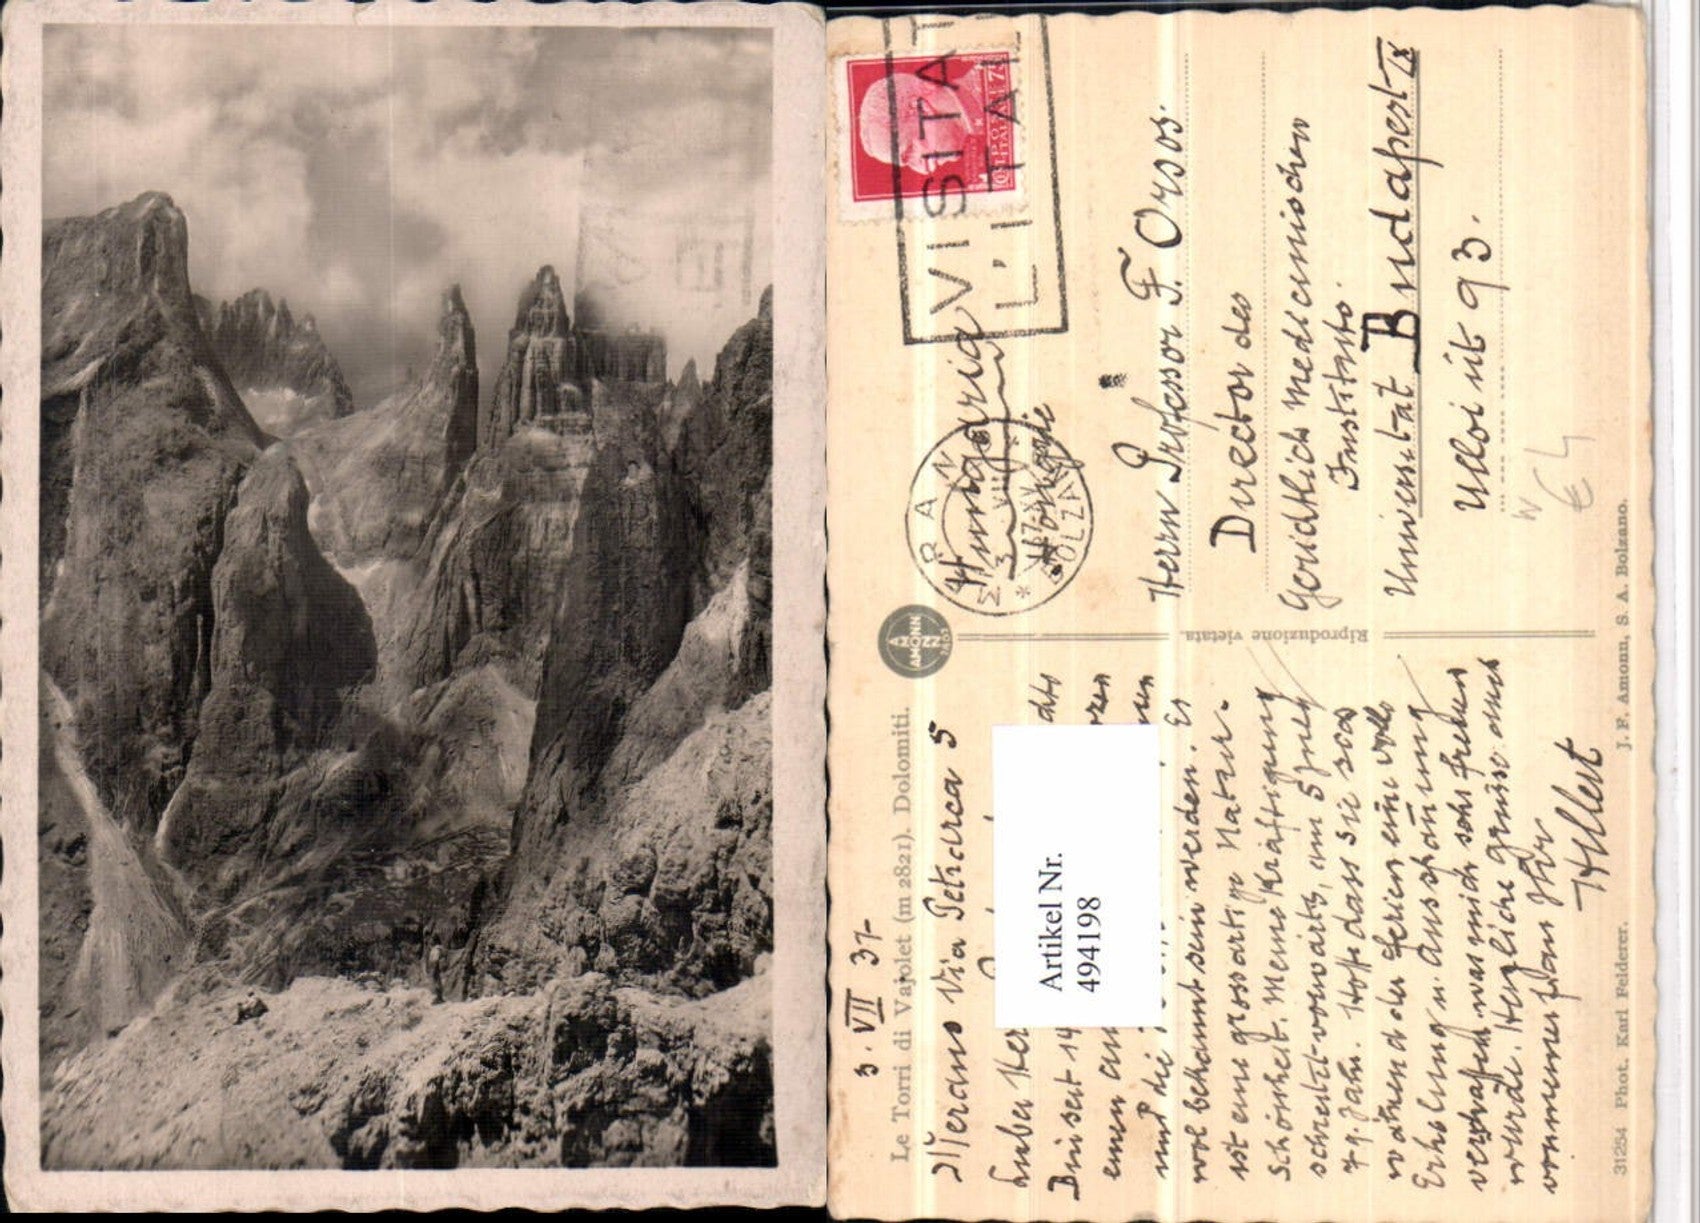 VISITATE
L'ITALIA
POSTE ITALIANE
MERANO
BOLZANO
Hungaria
Hongrie
Herrn Professor F. Orsos.
Director des
Gerichtlich Medicinischen
Instituts.
Universität Budapest IX
Ulloi út 93.
€ 4
AMONN
BOZZ
Riproduzione vietata.
3. VII 37-
Le Torri di Vajolet (m 2821). Dolomiti.
Merano Via Petrarca 5
Lieber Her
Bin seit 14
einen an
und die
wol bekannt sein werden. Es
ist eine grossartige Natur-
Schönheit. Meine Kräftigung
schreitet vorwärts, am 5
79. Jahr. Hoffe dass Sie
während der Ferien eine volle
Erholung u. Ausschauung
verschaffen was mich sehr freuen
würde. Herzliche Grüsse auch
von meiner Frau Ihr
31234 Phot. Karl Felderer.
J. F. Amonn, S. A. Bolzano.
Artikel Nr.
494198